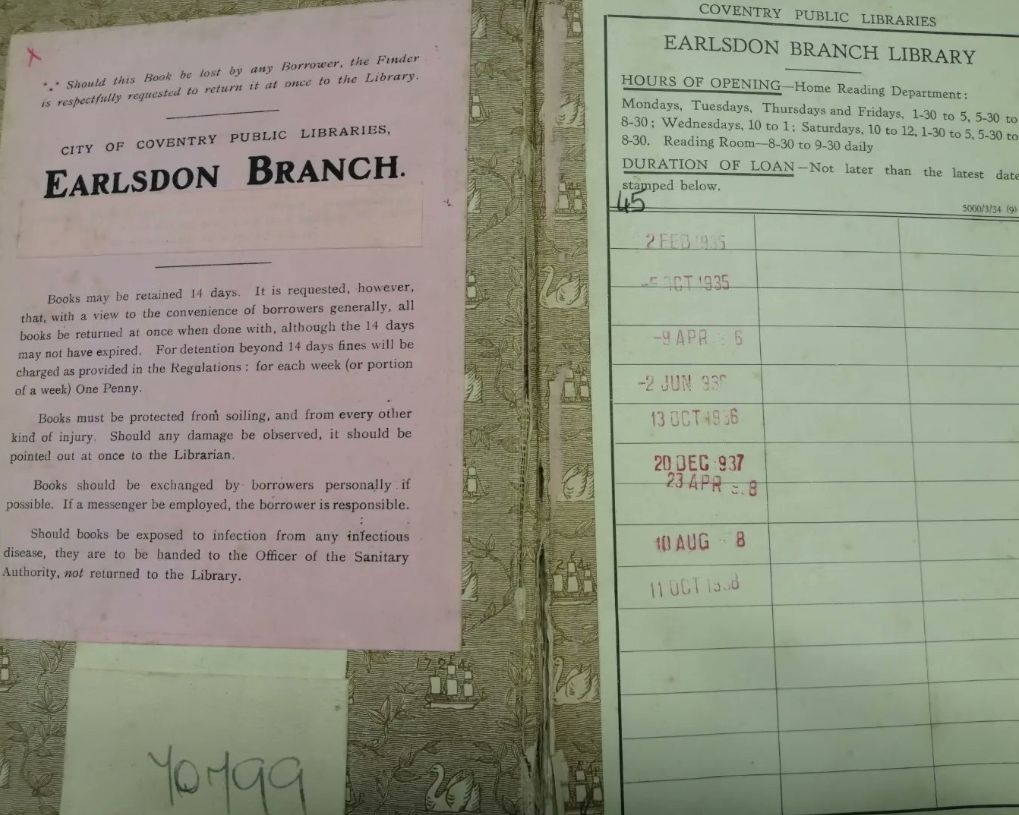 ⁂ Should this Book be lost by any Borrower, the Finder
is respectfully requested to return it at once to the Library.
CITY OF COVENTRY PUBLIC LIBRARIES,
EARLSDON BRANCH.
Books may be retained 14 days. It is requested, however,
that, with a view to the convenience of borrowers generally, all
books be returned at once when done with, although the 14 days
may not have expired. For detention beyond 14 days fines will be
charged as provided in the Regulations : for each week (or portion
of a week) One Penny.
Books must be protected from soiling, and from every other
kind of injury. Should any damage be observed, it should be
pointed out at once to the Librarian.
Books should be exchanged by borrowers personally if
possible. If a messenger be employed, the borrower is responsible.
Should books be exposed to infection from any infectious
disease, they are to be handed to the Officer of the Sanitary
Authority, not returned to the Library.
70799
1724
COVENTRY PUBLIC LIBRARIES
EARLSDON BRANCH LIBRARY
HOURS OF OPENING—Home Reading Department:
Mondays, Tuesdays, Thursdays and Fridays, 1-30 to 5, 5-30 to
8-30; Wednesdays, 10 to 1; Saturdays, 10 to 12, 1-30 to 5, 5-30 to
8-30. Reading Room—8-30 to 9-30 daily
DURATION OF LOAN—Not later than the latest date
stamped below.
45
5000/3/34 (9)
2 FEB 1935
-5 OCT 1935
-9 APR 6
-2 JUN 936
13 OCT 1936
20 DEC 937
23 APR 8
10 AUG 8
11 OCT 1938